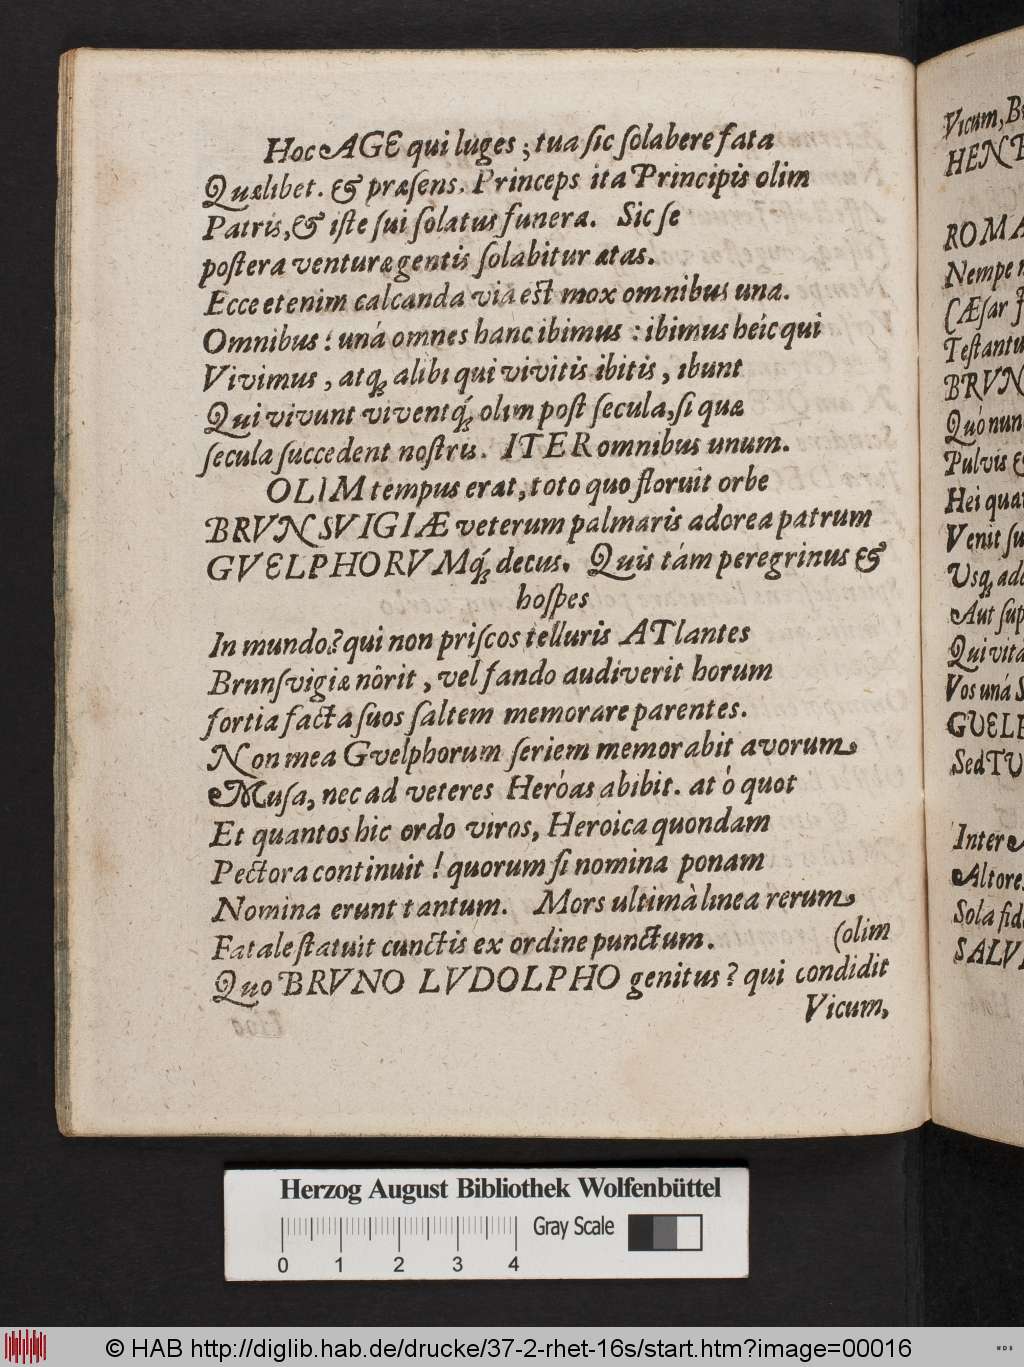 Hoc AGE qui luges; tua ſic ſolabere fata
Quælibet. & præſens. Princeps ita Principis olim
Patris, & iſte ſui ſolatus funera. Sic ſe
poſtera venturæ gentis ſolabitur ætas.
Ecce etenim calcanda via eſt mox omnibus una.
Omnibus! uná omnes hanc ibimus: ibimus heíc qui
Vivimus, atq́; alibi qui vivitis ibitis, ibunt
Qui vivunt viventq́; olim poſt ſecula, ſi quæ
ſecula ſuccedent noſtris. ITER omnibus unum.
OLIM tempus erat, toto quo floruit orbe
BRVNSVIGIÆ veterum palmaris adorea patrum
GVELPHORVMq́; decus. Quis tám peregrinus &
hoſpes
In mundo? qui non priſcos telluris ATlantes
Brunſvigiæ nôrit, vel fando audiverit horum
fortia facta ſuos ſaltem memorare parentes.
Non mea Gvelphorum ſeriem memorabit avorum
Muſa, nec ad veteres Heróas abibit. at ó quot
Et quantos hic ordo viros, Heroica quondam
Pectora continuit! quorum ſi nomina ponam
Nomina erunt tantum. Mors ultimà linea rerum
Fatale ſtatuit cunctis ex ordine punctum. (olim
Quo BRVNO LVDOLPHO genitus? qui condidit
Vicum,
Vicum, B
HEN
ROMA
Nempe
CÆſar
Teſtantu
BRVN
Quó nun
Pulvis &
Hei qua
Venit ſu
Uſq; ad
Aut ſup
Qui vita
Vos uná
GUELP
Sed TV
Inter
Altore
Sola fid
SALV
Herzog August Bibliothek Wolfenbüttel
Gray Scale
0 1 2 3 4
© HAB http://diglib.hab.de/drucke/37-2-rhet-16s/start.htm?image=00016